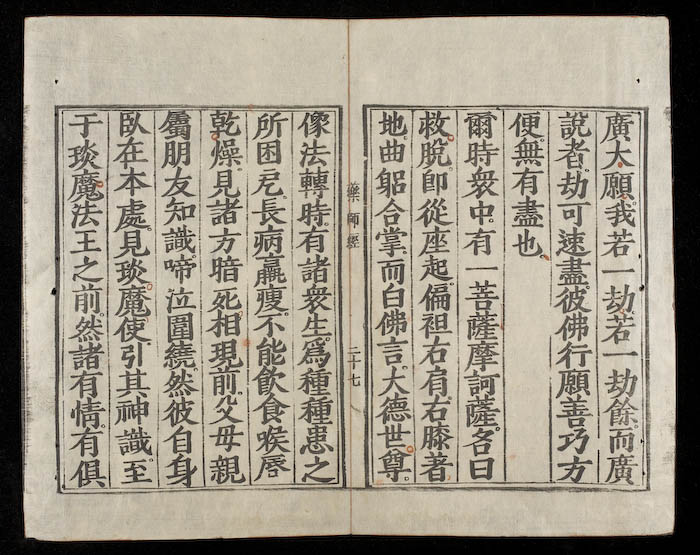 廣大願。我若一劫。若一劫餘。而廣
說者。劫可速盡。彼佛行願善巧方
便無有盡也。
爾時衆中。有一菩薩摩訶薩。名曰
救脫。卽從座起。偏袒右肩。右膝著
地。曲躳合掌。而白佛言。大德世尊。
藥師經
二十七
像法轉時。有諸衆生。爲種種患之
所困厄。長病羸瘦。不能飮食。喉唇
乾燥。見諸方暗。死相現前。父母親
屬朋友知識。啼泣圍繞。然彼自身
臥在本處。見琰魔使引其神識。至
于琰魔法王之前。然諸有情。有俱